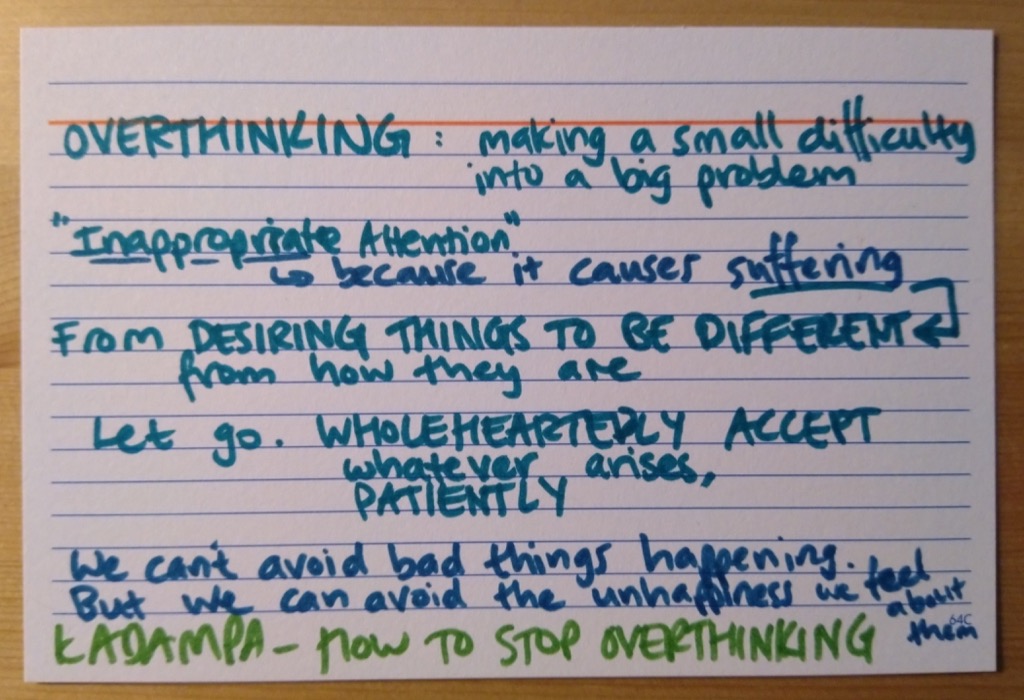 OVERTHINKING : making a small difficulty
into a big problem
"Inappropriate Attention"
↳ because it causes suffering
From DESIRING THINGS TO BE DIFFERENT
from how they are
Let go. WHOLEHEARTEDLY ACCEPT
whatever arises,
PATIENTLY
We can't avoid bad things happening.
But we can avoid the unhappiness we feel
about
them
64C
KADAMPA - HOW TO STOP OVERTHINKING